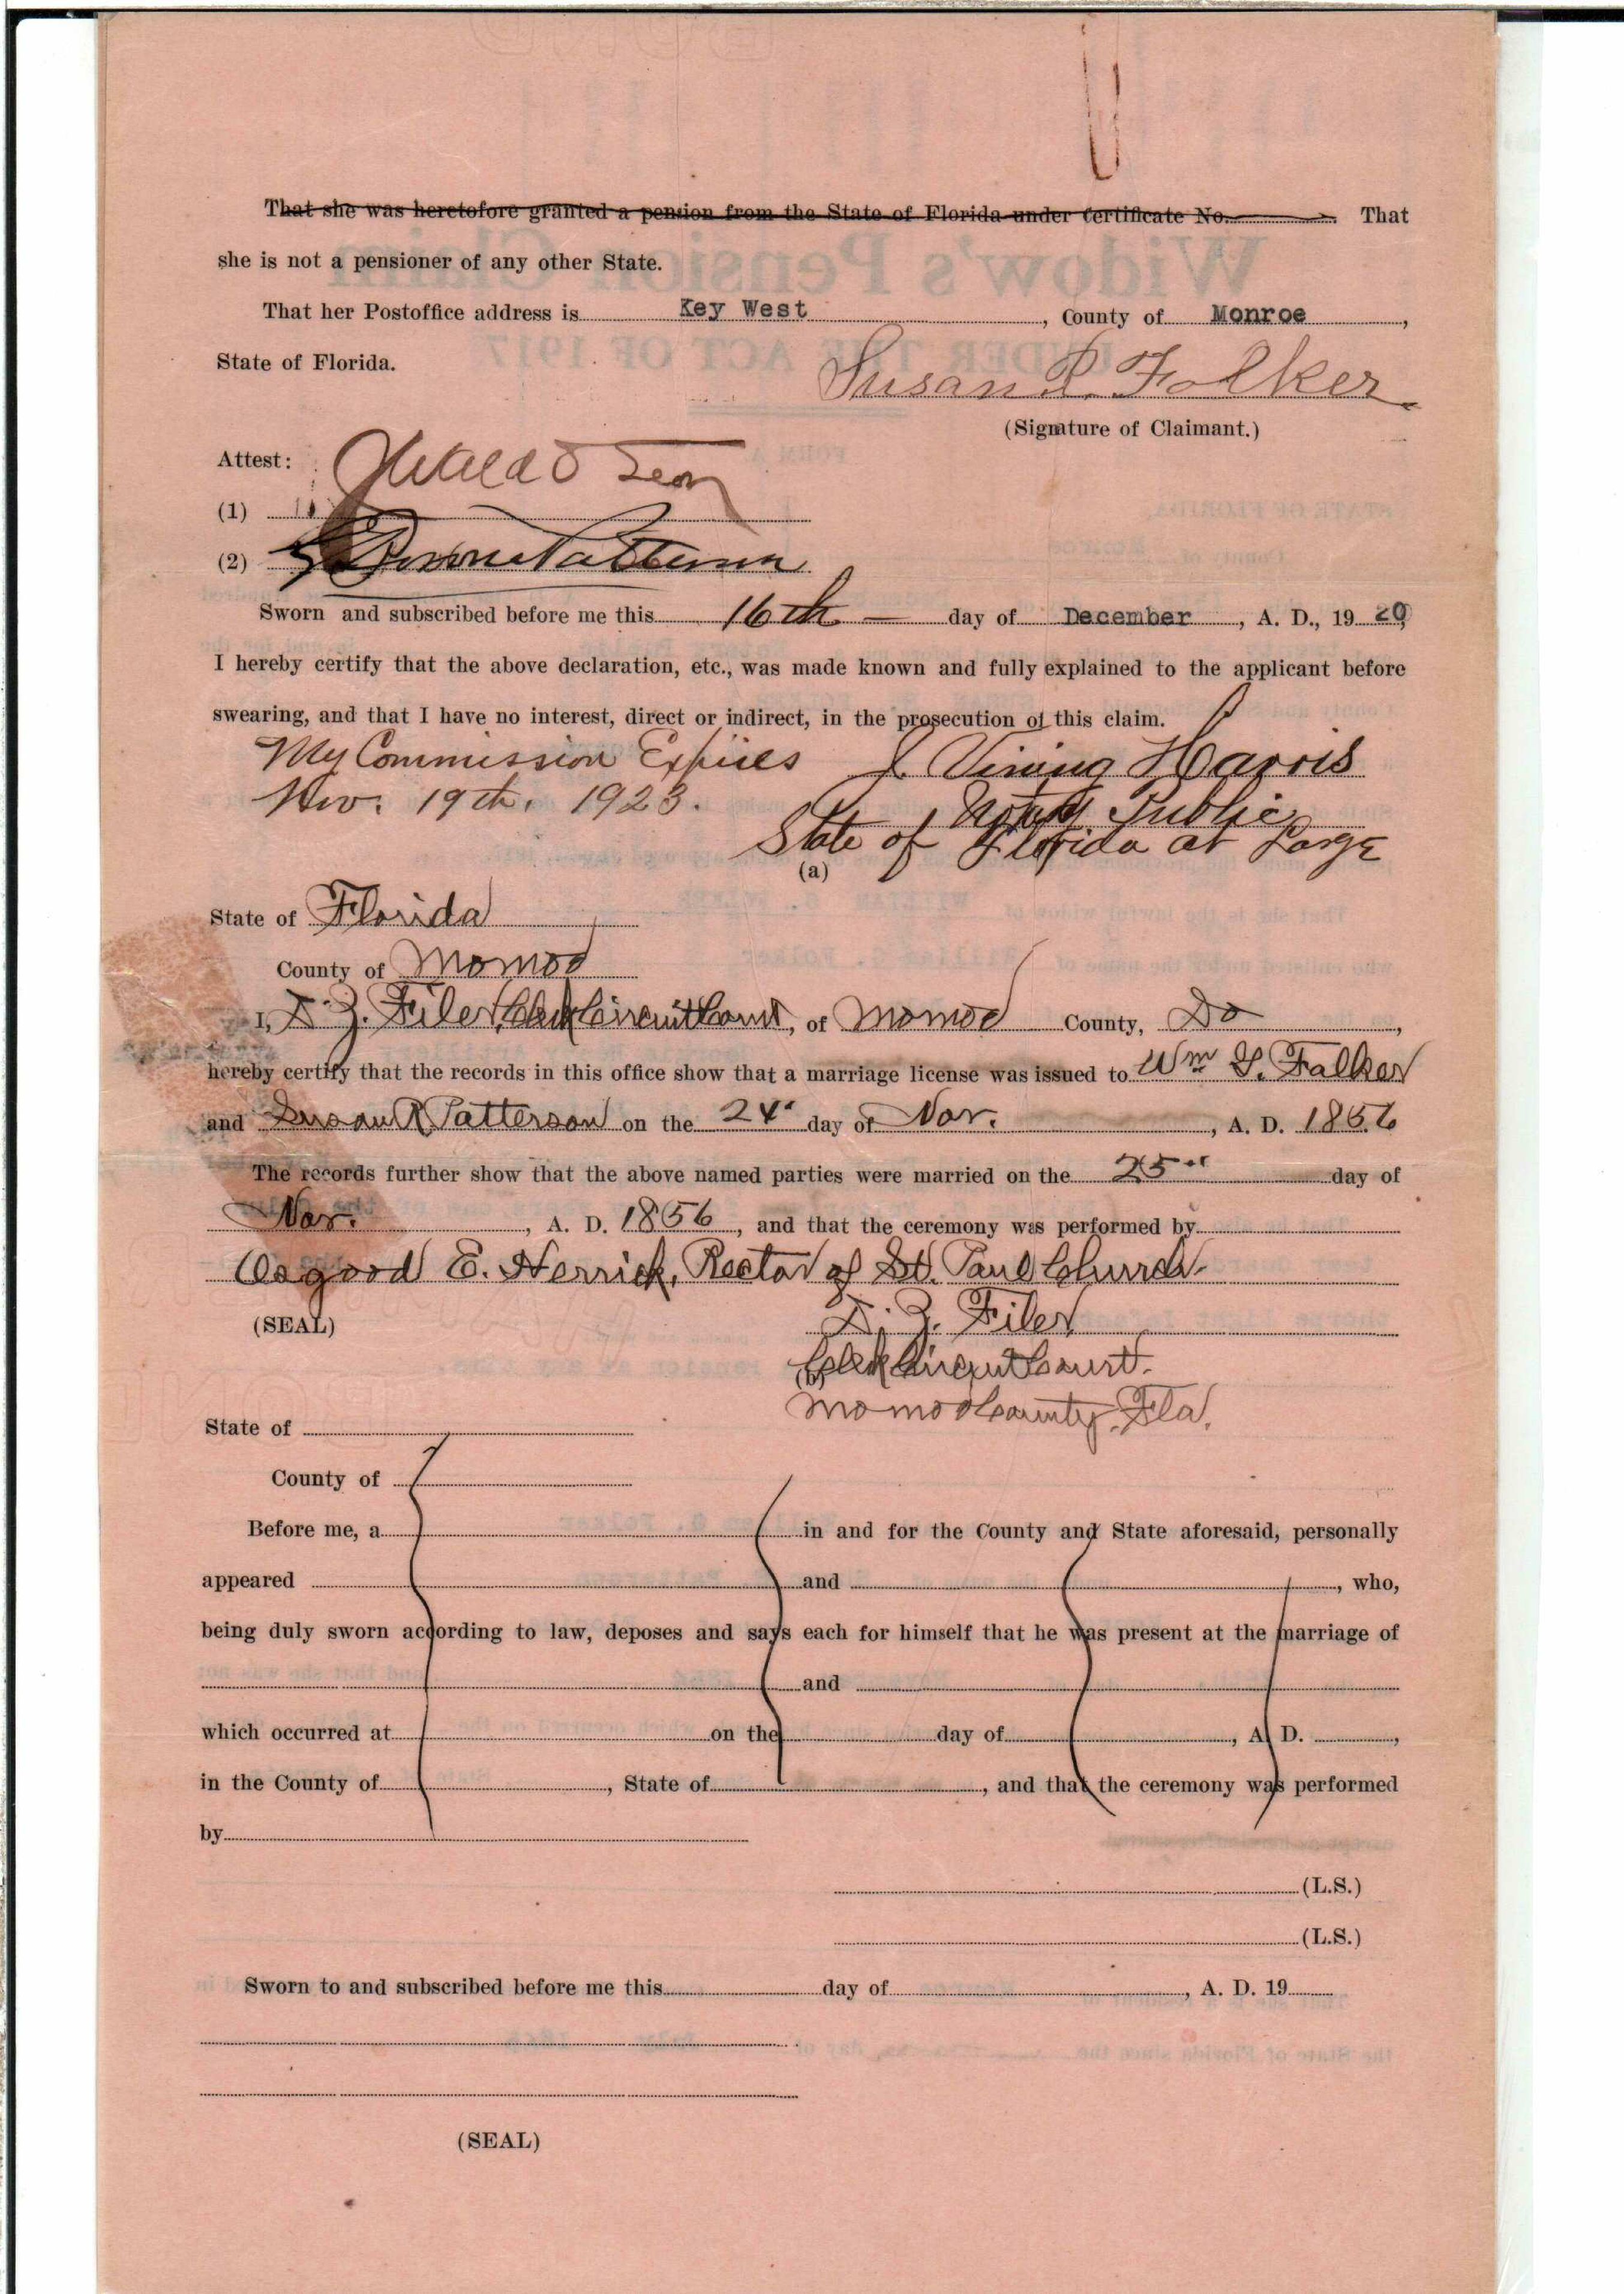 That she was heretofore granted a pension from the State of Florida under Certificate No. . That
she is not a pensioner of any other State.
That her Postoffice address is Key West, County of Monroe,
State of Florida.
Susan R. Folker
(Signature of Claimant.)
Attest:
(1)
(2) Patterson
Sworn and subscribed before me this 16th — day of December, A. D., 19 20
I hereby certify that the above declaration, etc., was made known and fully explained to the applicant before
swearing, and that I have no interest, direct or indirect, in the prosecution of this claim.
My Commission Expires J. Vining Harris
Nov. 19th, 1923. Notary Public
State of Florida at Large
(a)
State of Florida
County of Monroe
I, D. Z. Filer, Clerk Circuit Court, of Monroe County, Do,
hereby certify that the records in this office show that a marriage license was issued to Wm G. Folker
and Susan R Patterson on the 24" day of Nov., A. D. 1856
The records further show that the above named parties were married on the 25" day of
Nov., A. D. 1856, and that the ceremony was performed by
Osgood E. Herrick, Rector of St. Paul Church.
(SEAL)
D. Z. Filer
Clerk Circuit Court.
(b)
Monroe County, Fla.
State of
County of
Before me, a in and for the County and State aforesaid, personally
appeared and , who,
being duly sworn according to law, deposes and says each for himself that he was present at the marriage of
and
which occurred at on the day of , A. D. ,
in the County of , State of , and that the ceremony was performed
by
(L.S.)
(L.S.)
Sworn to and subscribed before me this day of , A. D. 19
(SEAL)